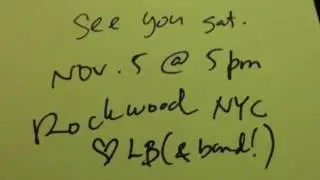 See you sat.
NOV. 5 @ 5pm
Rockwood NYC
♡ LB (& band!)